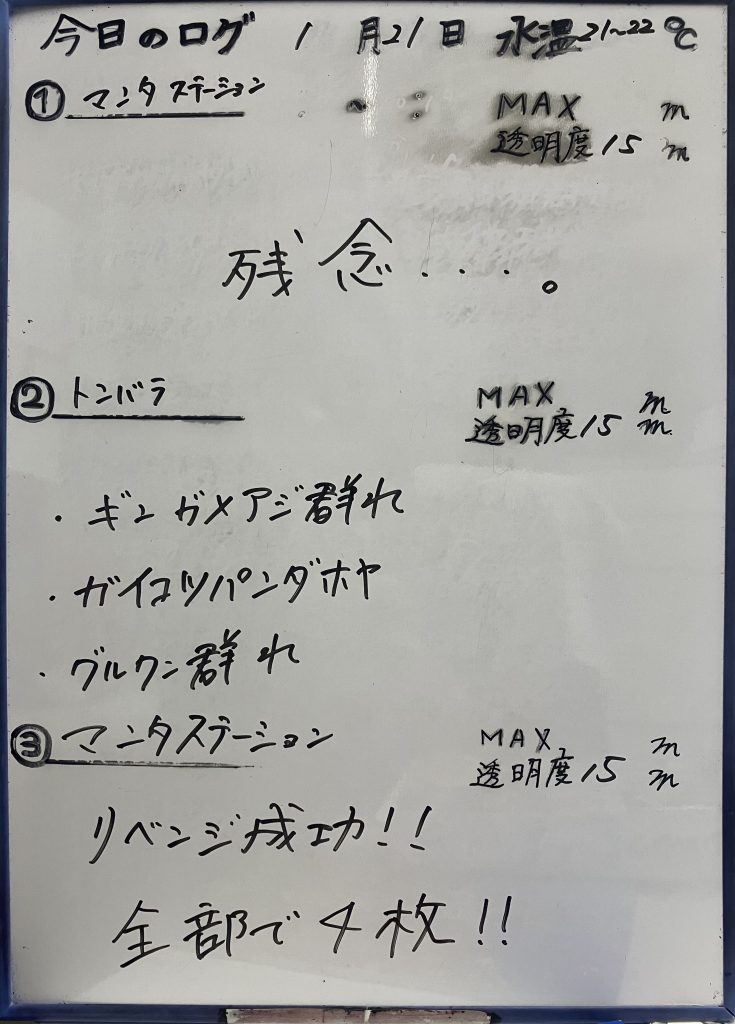 今日のログ 1月21日 水温21~22℃
① マンタステーション MAX m
透明度15m
残念・・・・。
② トンバラ MAX m
透明度15m
・ギンガメアジ群れ
・ガイコツパンダホヤ
・グルクン群れ
③ マンタステーション MAX m
透明度15m
リベンジ成功!!
全部で4枚!!